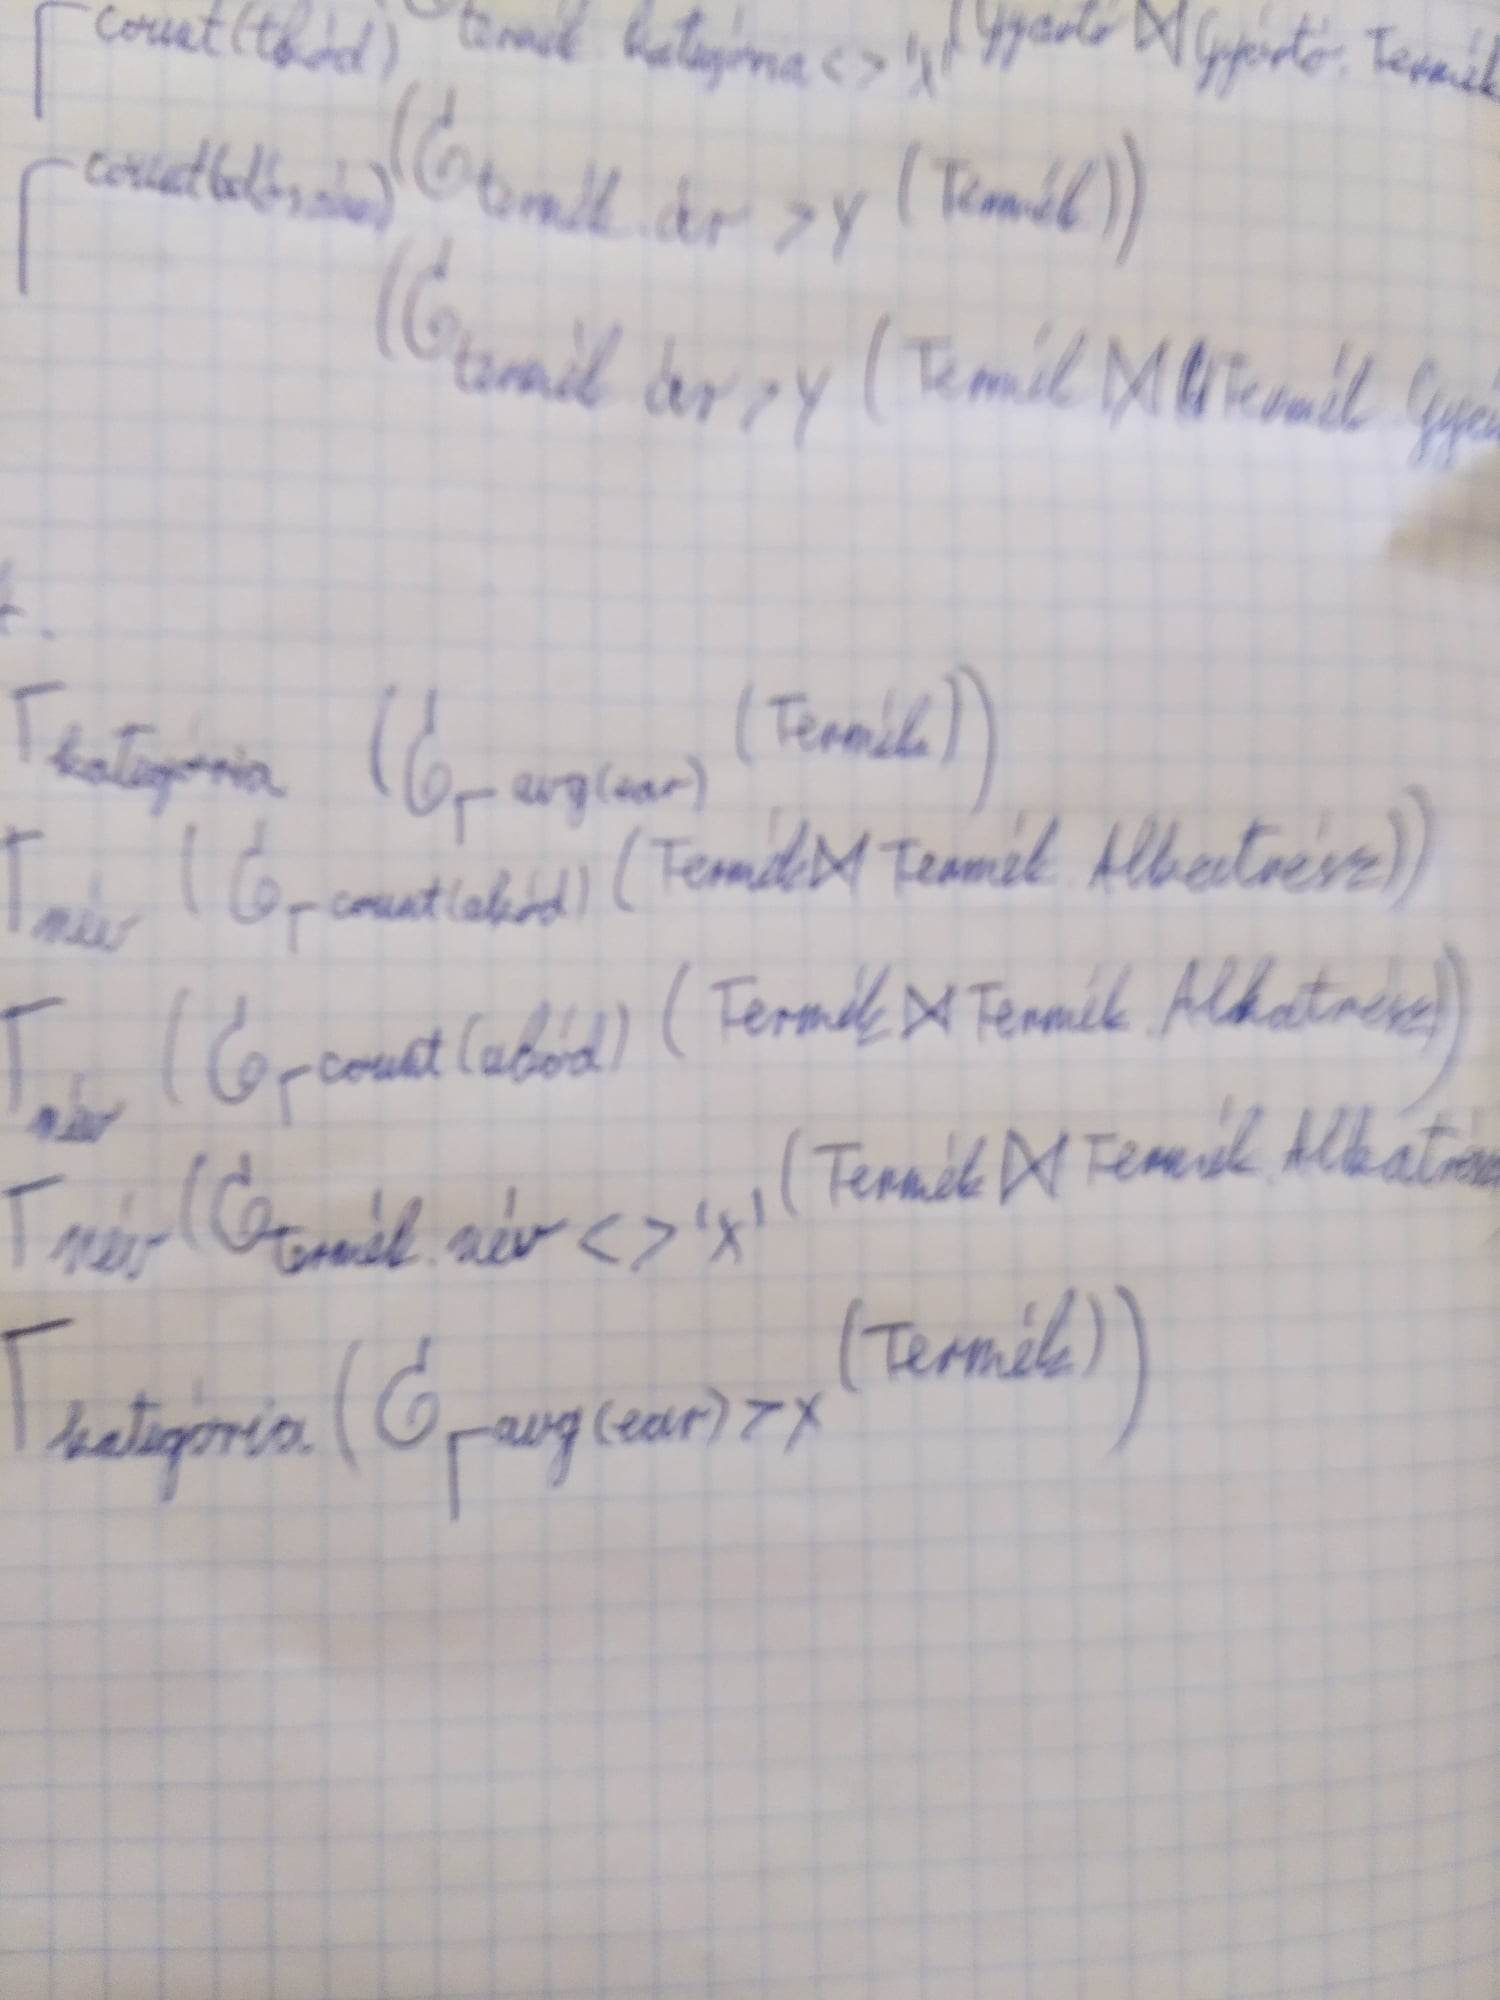 Γcount(tkód) termék kategória <> 'x' (Gyártó ⋈ Gyártó.Termék
Γcount( (σtermék.ár > y (Termék))
(σtermék ár > y (Termék ⋈ Termék Gyá
Γkategória (σΓavg(ear) (Termék))
Γnév (σΓcount(akód) (Termék ⋈ Termék Alkatrész))
Γnév (σΓcount(akód) (Termék ⋈ Termék.Alkatrész))
Γnév (σtermék.név <> 'x' (Termék ⋈ Termék.Alkatrész
Γkategória (σΓavg(ear) > x (Termék))